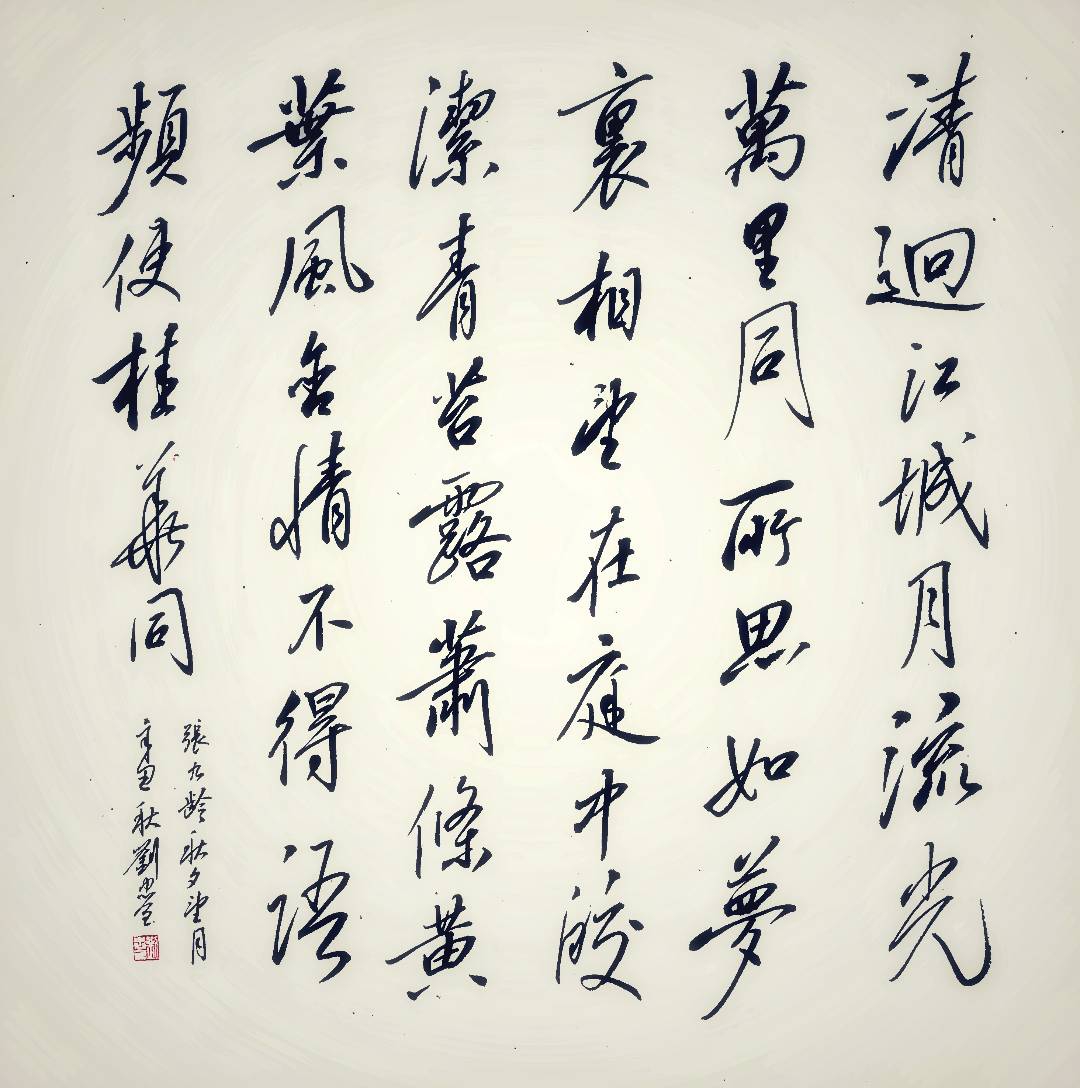 清迥江城月流光
萬里同所思如夢
裏相望在庭中皎
潔青苔露蕭條黃
葉風含情不得語
頻使桂華同
張九齡秋夕望月
秋劉